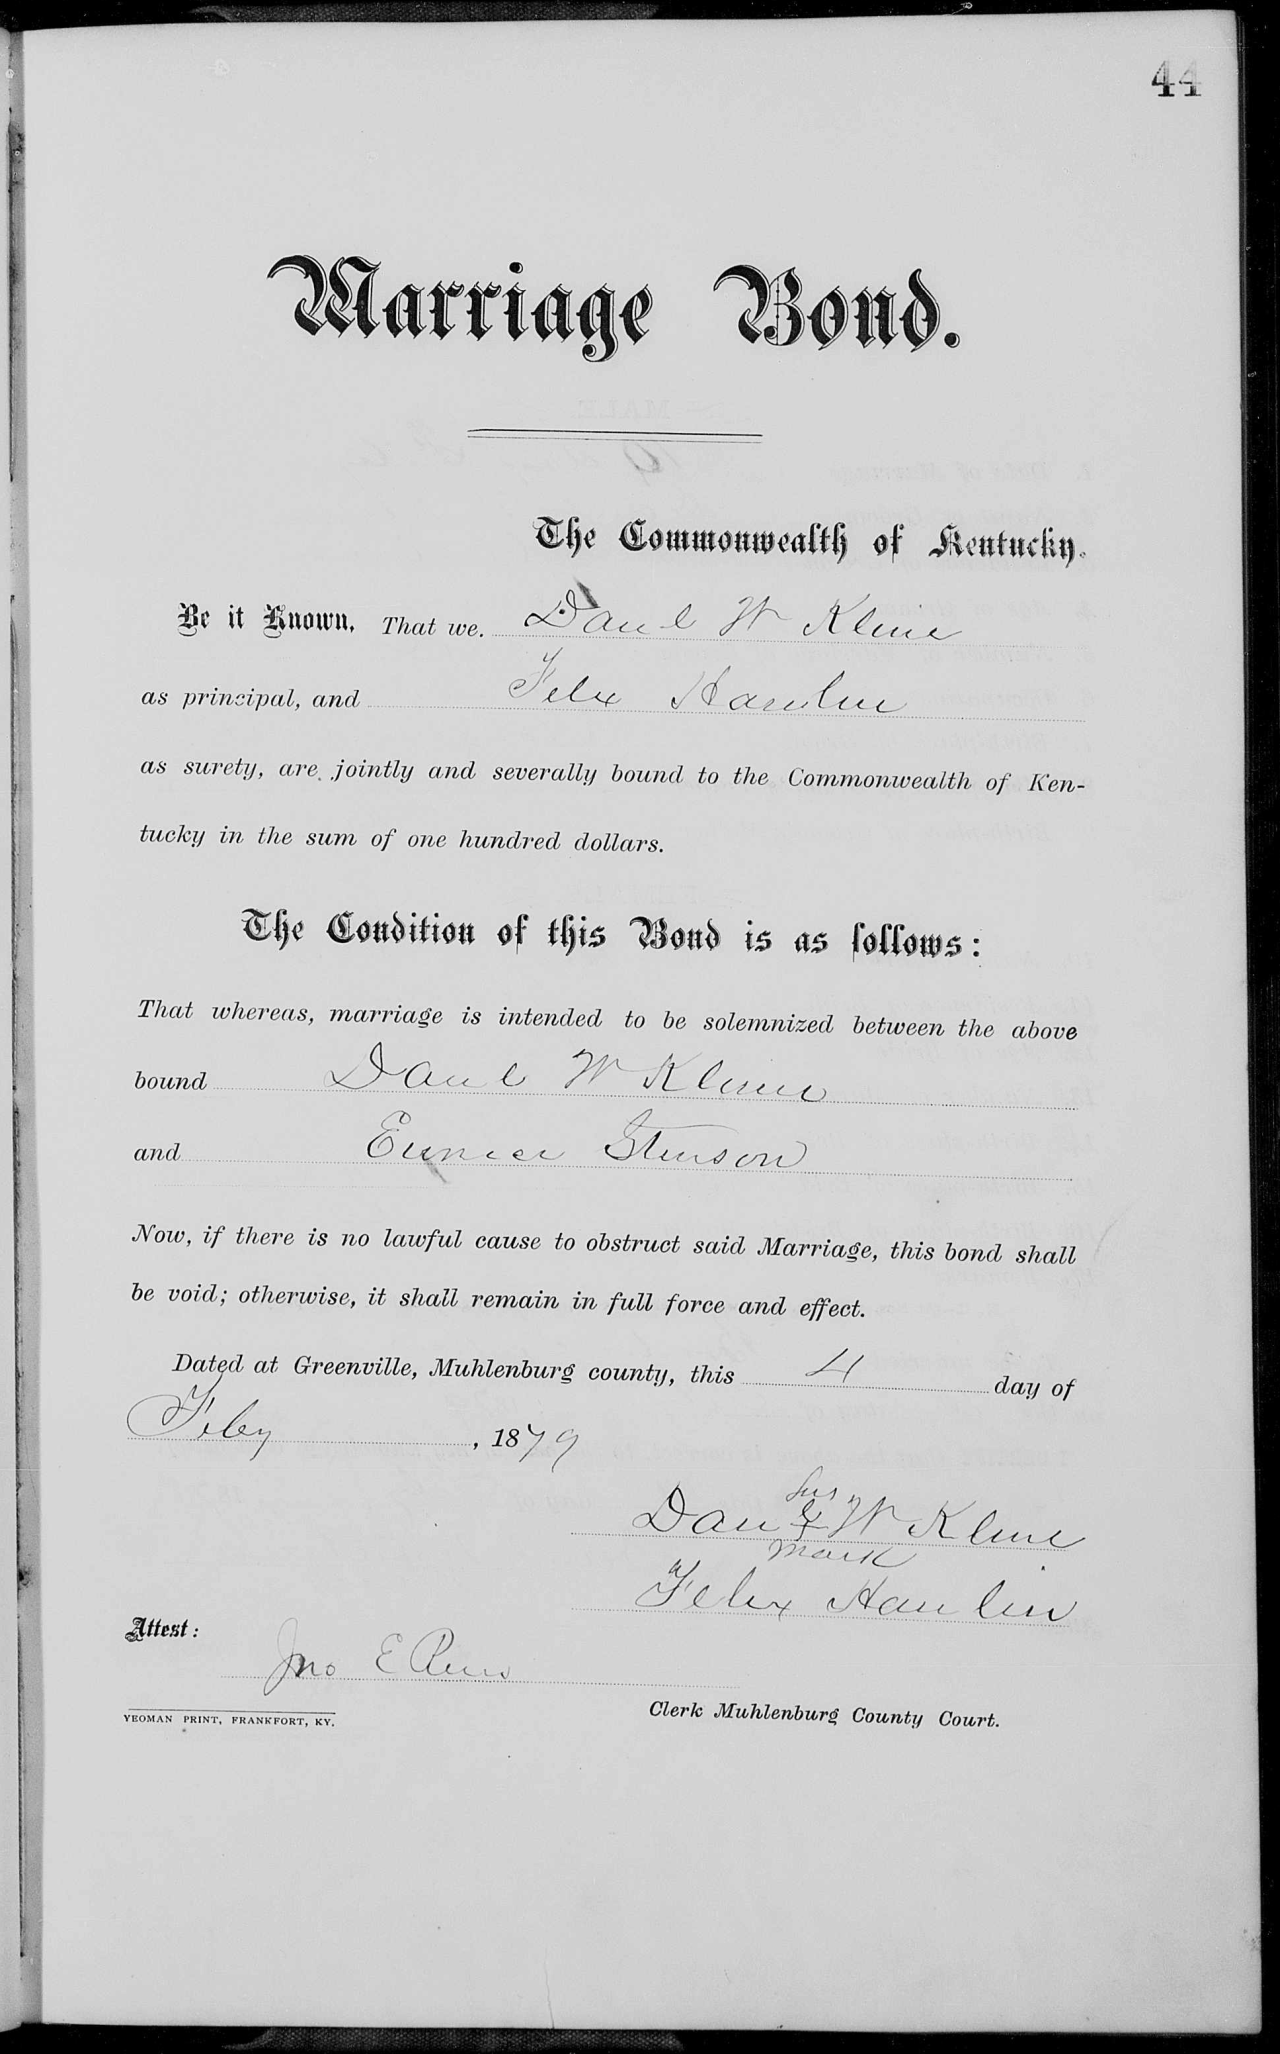 44
Marriage Bond.
The Commonwealth of Kentucky.
Be it Known, That we, Danl W Kline
as principal, and Felix Hamlin
as surety, are jointly and severally bound to the Commonwealth of Ken-
tucky in the sum of one hundred dollars.
The Condition of this Bond is as follows:
That whereas, marriage is intended to be solemnized between the above
bound Danl W Kline
and Eunice Stinson
Now, if there is no lawful cause to obstruct said Marriage, this bond shall
be void; otherwise, it shall remain in full force and effect.
Dated at Greenville, Muhlenburg county, this 4 day of
Feby, 1879
his
Danl X W Kline
mark
Felix Hamlin
Attest:
Jno E Reno
Clerk Muhlenburg County Court.
YEOMAN PRINT, FRANKFORT, KY.